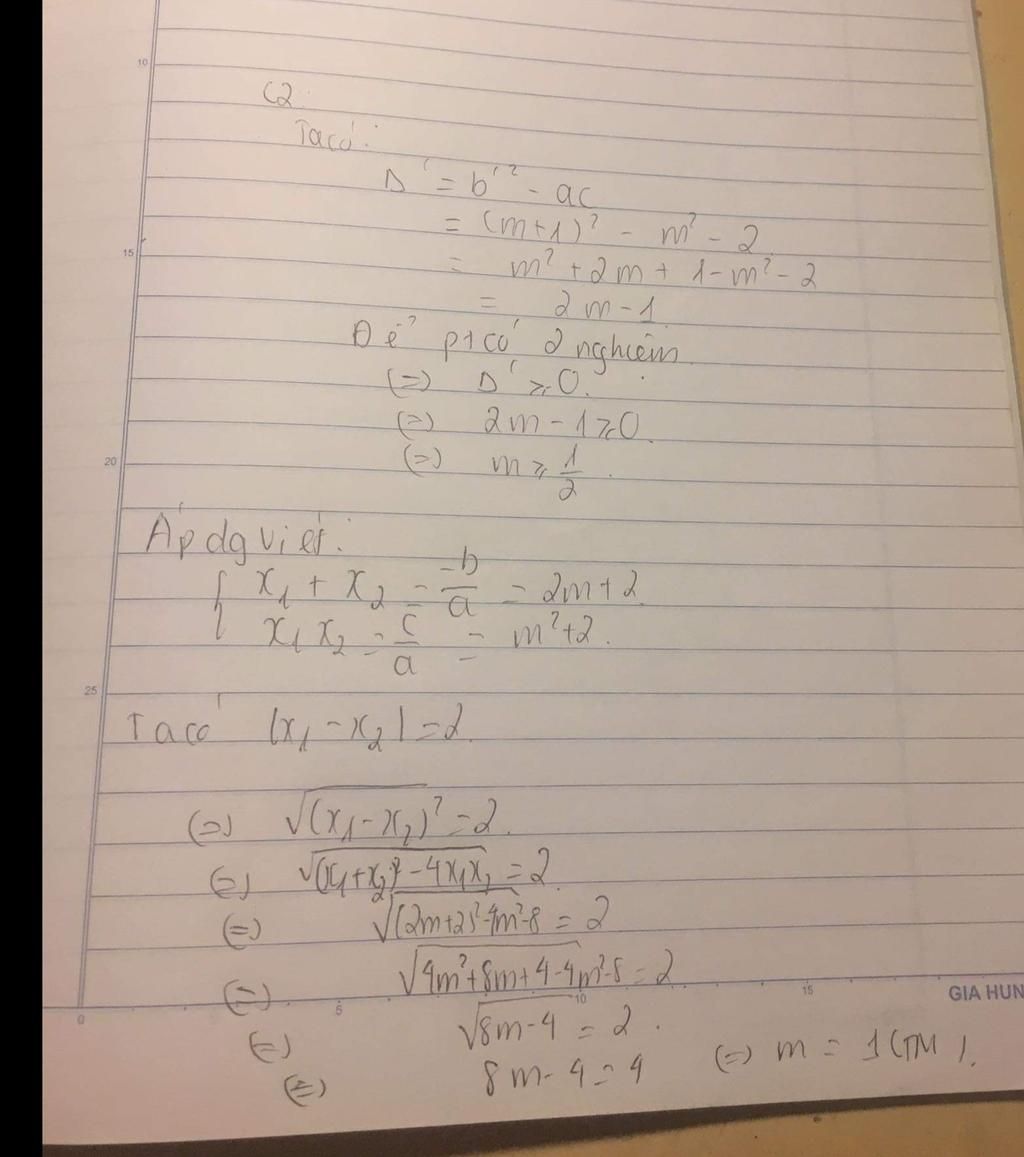 10
C2:
Ta có:
Δ' = b'² - ac
= (m+1)² - m² - 2
15
= m² + 2m + 1 - m² - 2
= 2m - 1
Để pt có 2 nghiệm
(=) Δ' ≥ 0.
(=) 2m - 1 ≥ 0.
20
(=) m ≥ 1/2.
Áp dg viét:
{ x₁ + x₂ = -b/a = 2m + 2
x₁ x₂ = c/a = m² + 2.
25
Ta có |x₁ - x₂| = 2.
(=) √(x₁ - x₂)² = 2.
(=) √(x₁+x₂)² - 4x₁x₂ = 2
(=) √(2m+2)² - 4m² - 8 = 2
(=) √4m² + 8m + 4 - 4m² - 8 = 2
0 5 10 15 GIA HUN
(=) √8m - 4 = 2.
(=) 8m - 4 = 4 (=) m = 1 (TM).